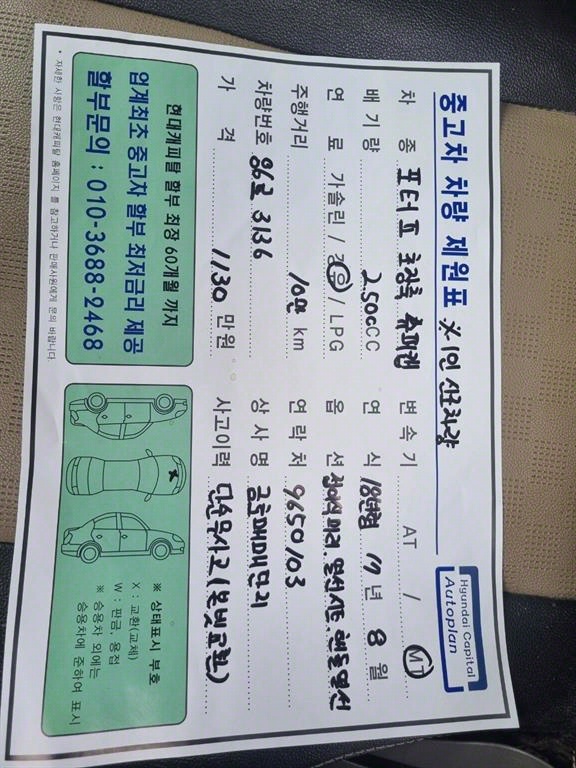 중고차 차량 제원표 ※1인 신조차량
Hyundai Capital
Autoplan
차 종 포터Ⅱ 초장축 슈퍼캡
변속기 AT / MT
배기량 2.500CC
연 식 18년형 17년 8월
연 료 가솔린 / 경유 / LPG
옵 션 열선시트. 핸들열선
주행거리 10만 km
연락처 9650103
차량번호 96로 3136
상사명
가 격 1130 만원
사고이력 단순무사고(본넷교환)
현대캐피탈 할부 최장 60개월 까지
업계최초 중고차 할부 최저금리 제공
할부문의 : 010-3688-2468
* 자세한 사항은 현대캐피탈 홈페이지 를 참고하거나 판매사원에게 문의 바랍니다.
X
※ 상태표시 부호
X : 교환(교체)
W : 판금, 용접
※ 승용차 외에는
승용차에 준하여 표시